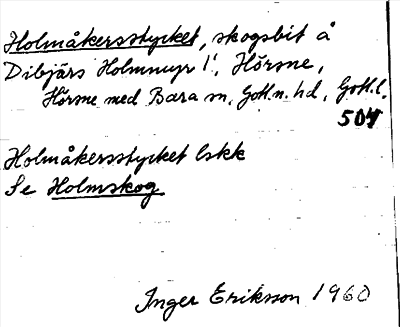 Holmåkersstycket, skogsbit å
Dibjärs Holmmyr 1¹, Hörsne,
Hörsne med Bara sn, Gotl. n. hd, Gotl. l.
504
Holmåkersstycket lskk
Se Holmskog
Inger Eriksson 1960